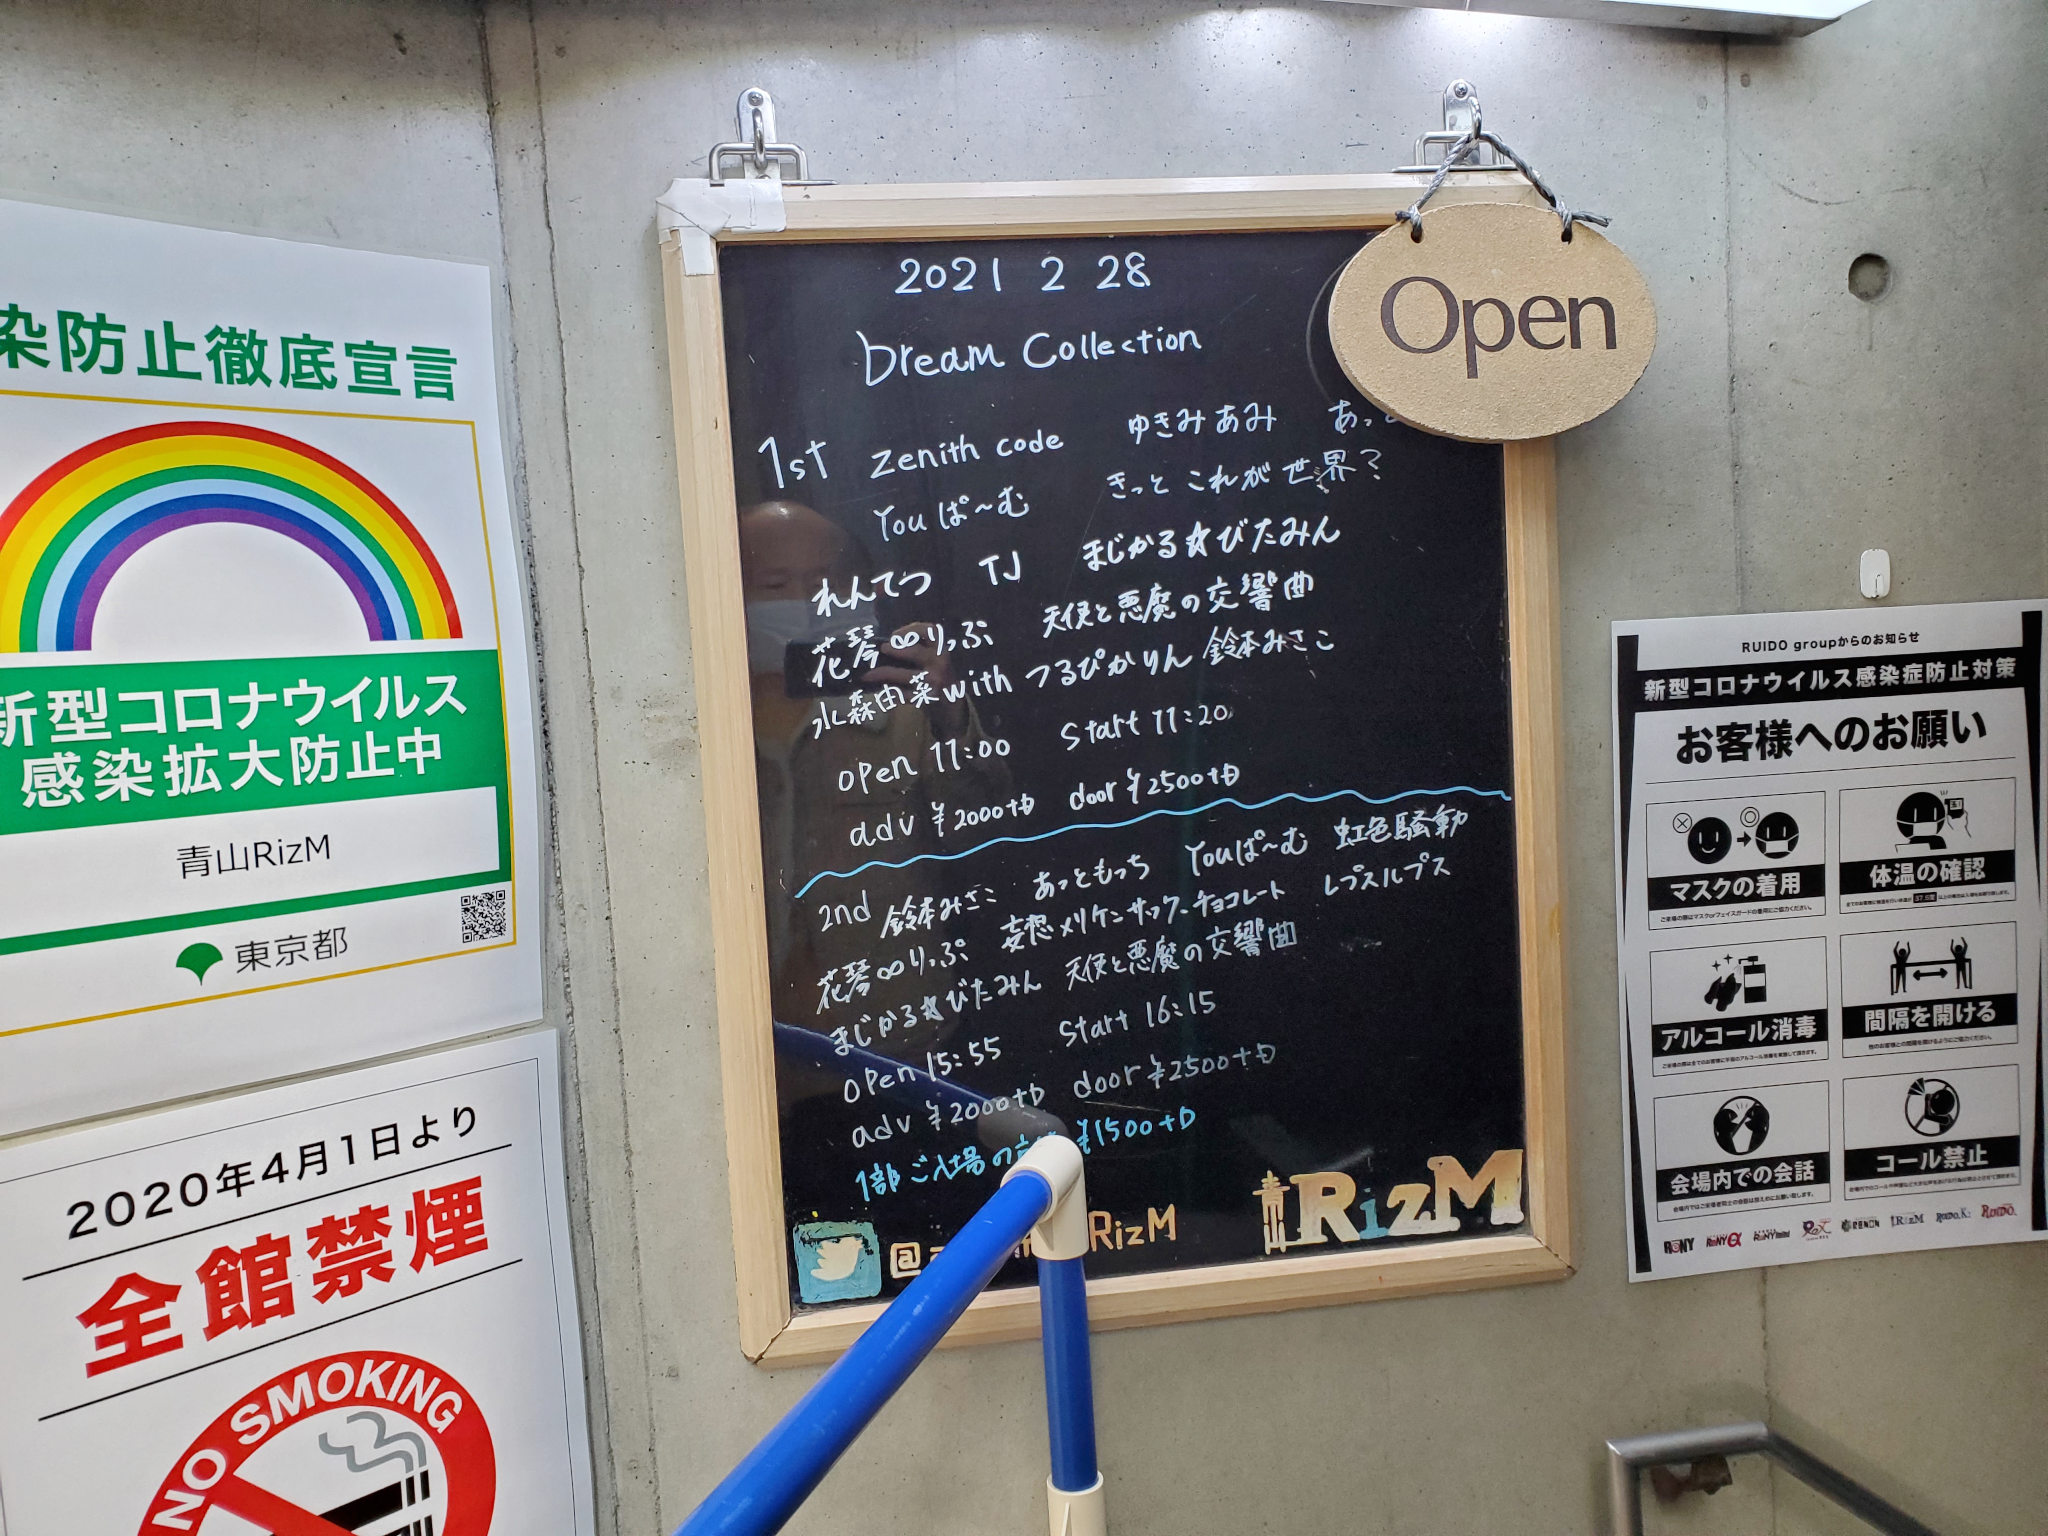 染防止徹底宣言
新型コロナウイルス
感染拡大防止中
青山RizM
東京都
2020年4月1日より
全館禁煙
NO SMOKING
Open
2021 2 28
Dream Collection
1st zenith code ゆきみあみ あっと
Youぱ〜む きっと これが世界?
れんてつ TJ まじかる☆びたみん
花琴∞りっぷ 天使と悪魔の交響曲
水森由菜with つるぴかりん 鈴本みさこ
open 11:00 start 11:20
adv ¥2000+D door ¥2500+D
2nd 鈴本みさこ あっともっち Youぱ〜む 虹色騒動
花琴∞りっぷ 妄想メリケンサック・チョコレート レプスルプス
まじかる☆びたみん 天使と悪魔の交響曲
open 15:55 start 16:15
adv ¥2000+D door ¥2500+D
1部ご入場の ¥1500+D
@ RizM
青山RizM
RUIDO groupからのお知らせ
新型コロナウイルス感染症防止対策
お客様へのお願い
マスクの着用
ご来場の際はマスクorフェイスガードの着用にご協力ください。
体温の確認
アルコール消毒
間隔を開ける
他のお客様との間隔を開けるようにご協力ください。
会場内での会話
コール禁止
RONY RONYα RONY ReX RENON RizM RUIDO.K2 RUIDO.